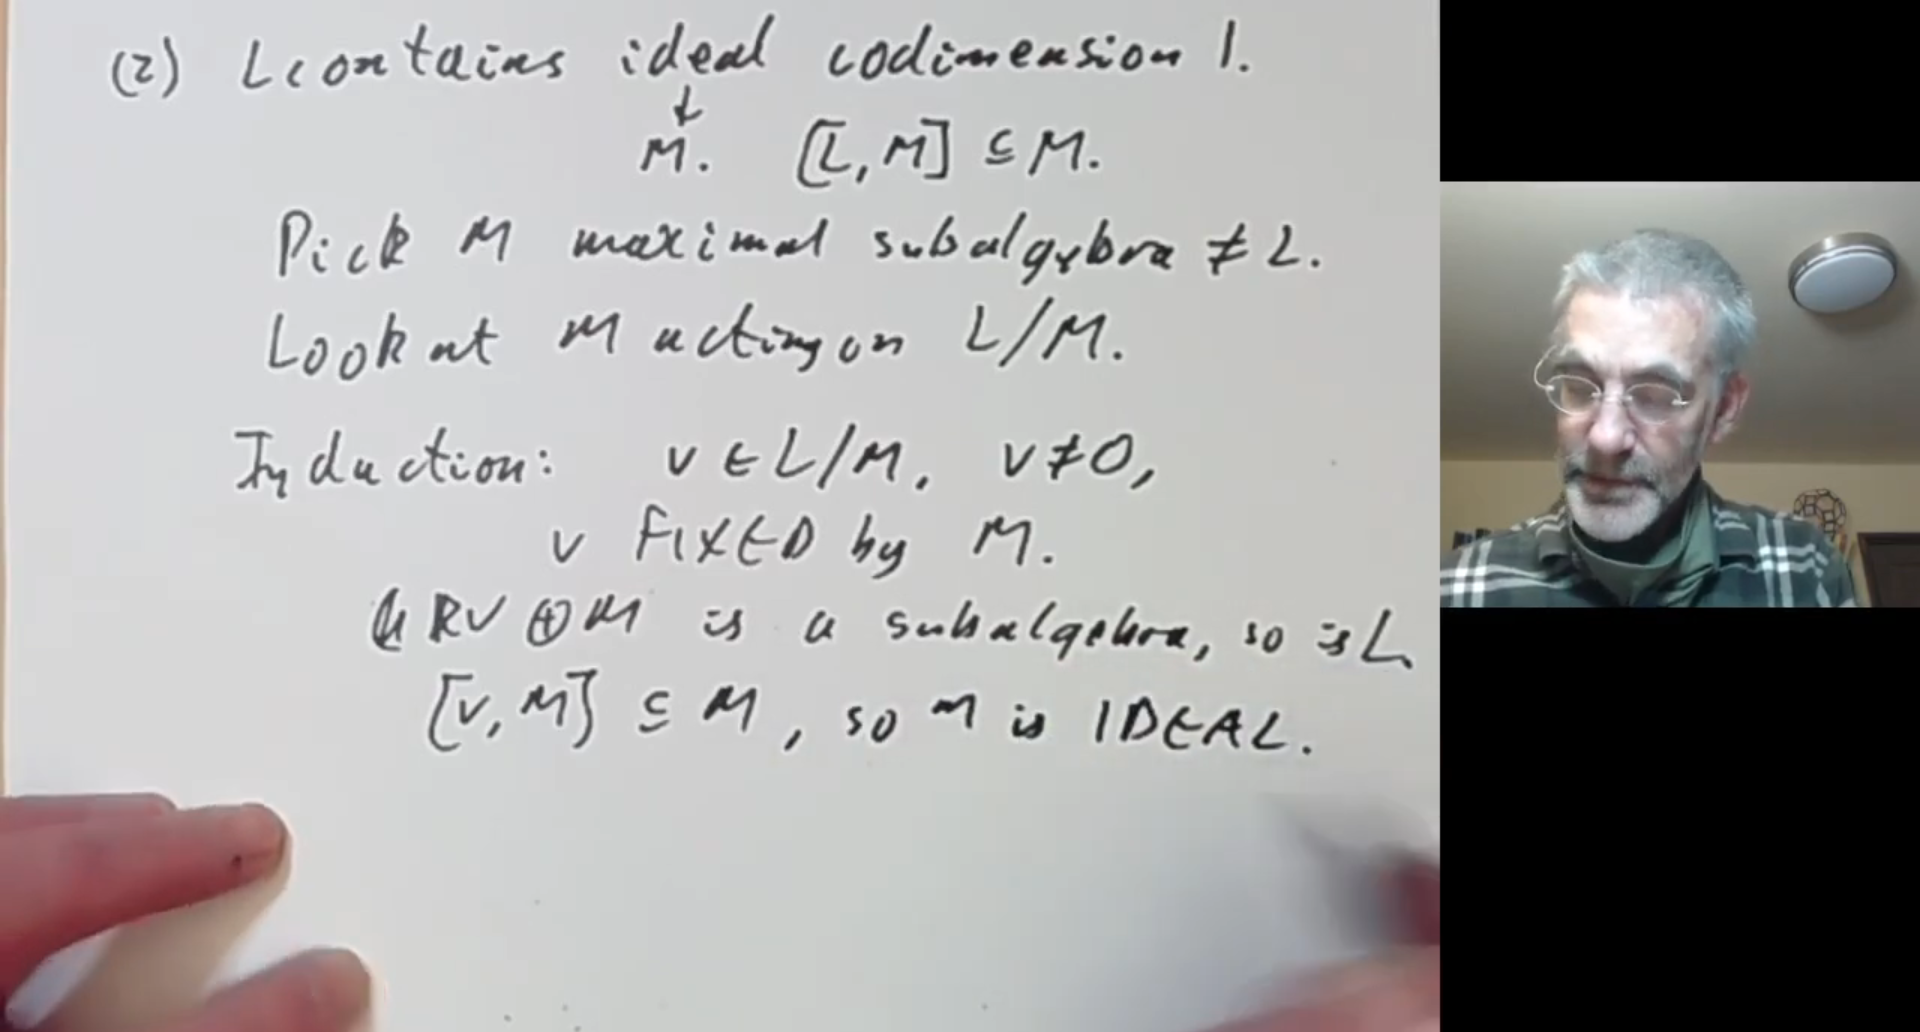 (2) L contains ideal codimension 1.
↓
M. [L, M] ⊆ M.
Pick M maximal subalgebra ≠ L.
Look at M acting on L/M.
Induction: v ∈ L/M, v ≠ 0,
v FIXED by M.
RV ⊕ M is a subalgebra, so is L
[v, M] ⊆ M, so M is IDEAL.